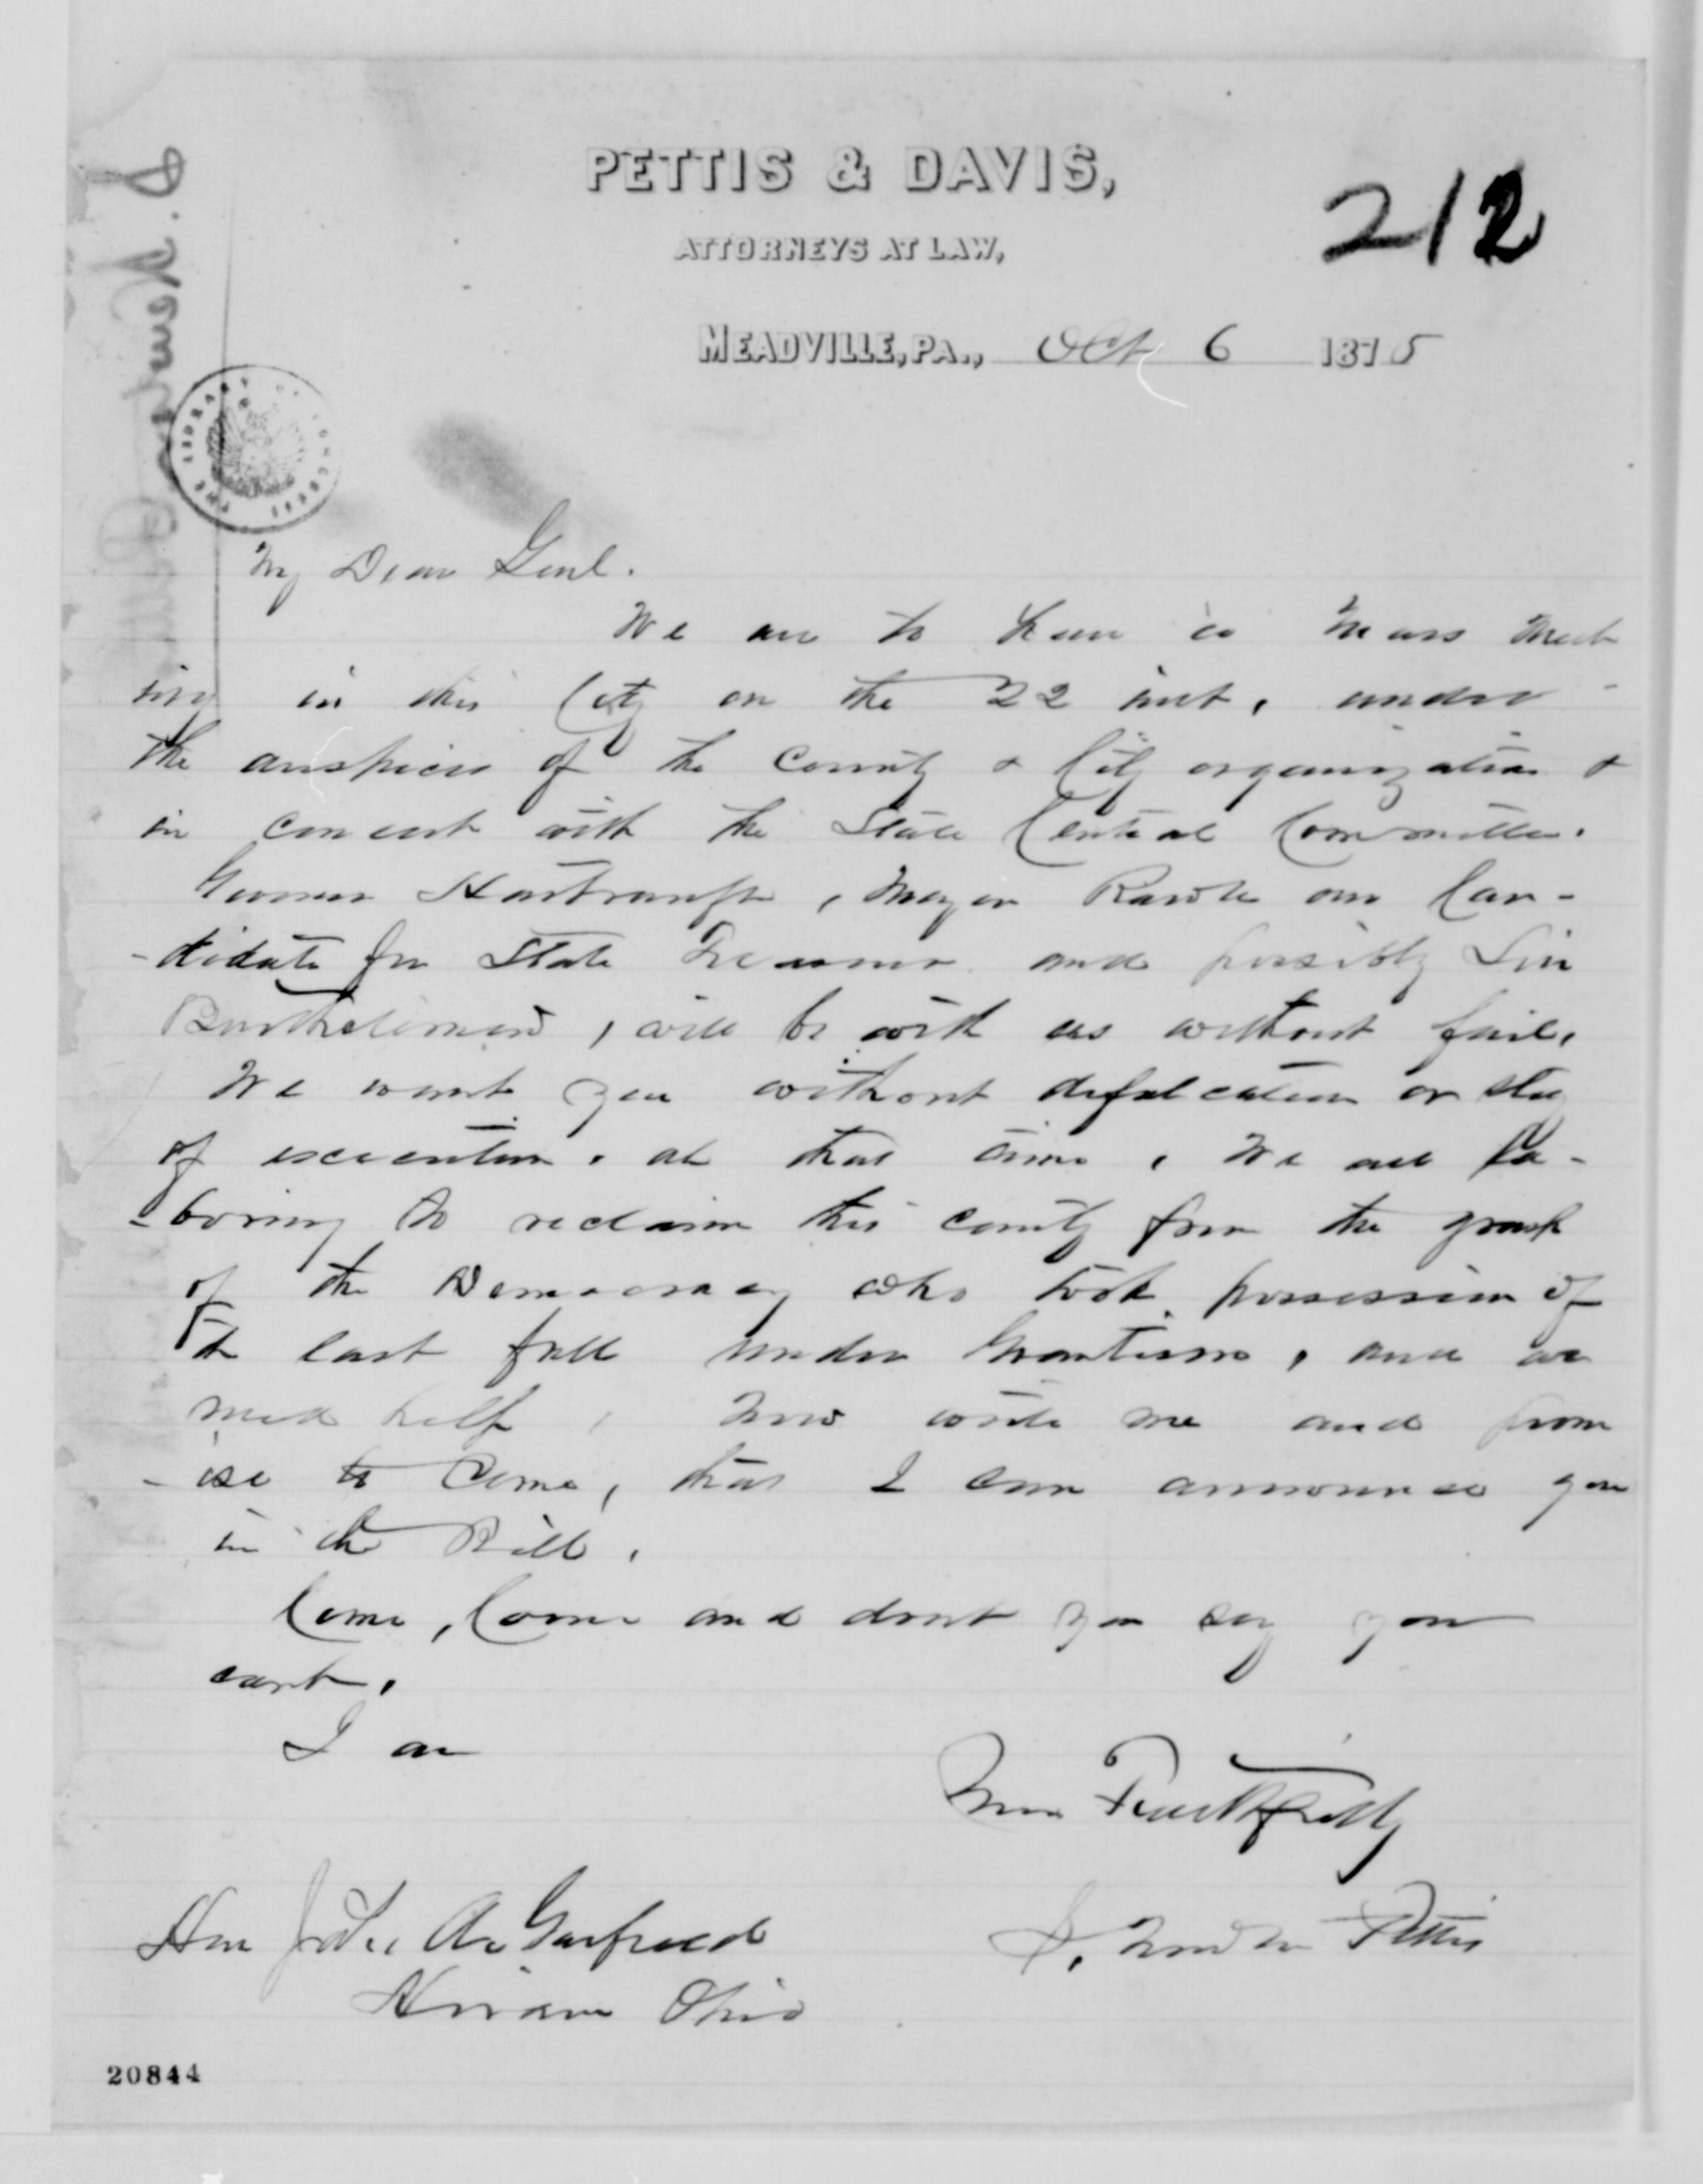 PETTIS & DAVIS,
ATTORNEYS AT LAW,
212
MEADVILLE, PA., Oct 6 1875
THE LIBRARY OF CONGRESS
My Dear Genl.
We are to have a Mass Meet
ing in this City on the 22 inst, under
the auspices of the County & City organization &
in concert with the State Central Committee.
Governor Hartranft, Mayor Rawle our Can-
-didate for State Treasurer and possibly Lin
Bartholomew, will be with us without fail,
We want you without defalcation or stay
of execution, at that time, We are la-
-boring to reclaim this county from the grasp
of the Democracy who took possession of
it last fall under Grantism, and we
need help, Now write me and prom
-ise to Come, that I can announce you
in the Bill.
Come, Come and dont you say you
cant.
I am
Your Faithfully
S. Newton Pettis
Hon Jas. A. Garfield
Hiram Ohio
20844